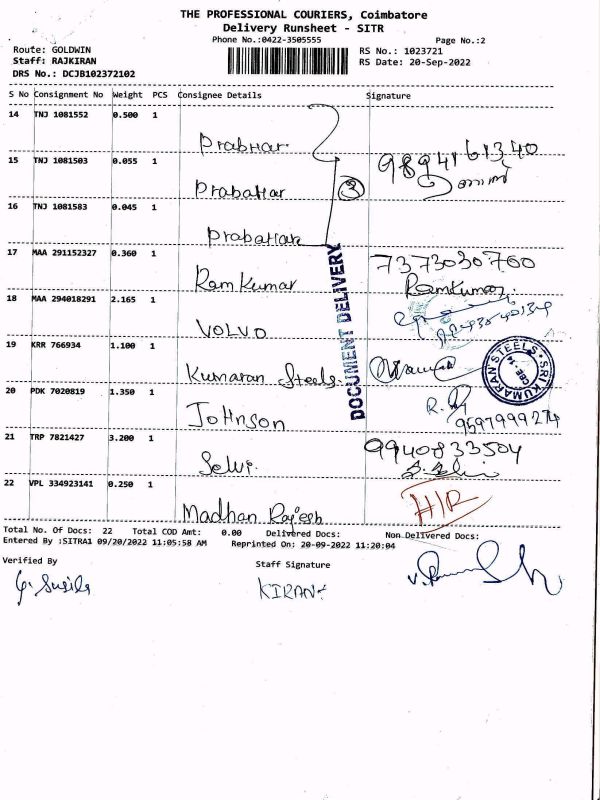 THE PROFESSIONAL COURIERS, Coimbatore
Delivery Runsheet - SITR
Phone No.:0422-3505555 Page No.:2
Route: GOLDWIN RS No.: 1023721
Staff: RAJKIRAN RS Date: 20-Sep-2022
DRS No.: DCJB102372102
S No Consignment No Weight PCS Consignee Details Signature
14 TNJ 1081552 0.500 1 Prabhar
15 TNJ 1081503 0.055 1 Prabahar 3 9894161340
16 TNJ 1081583 0.045 1 Prabahar
17 MAA 291152327 0.360 1 Ram Kumar 7373030700
Ramkumar.
18 MAA 294018291 2.165 1 VOLVO
19 KRR 766934 1.100 1 Kumaran Steels.
20 PDK 7020819 1.350 1 Johnson 9597999274
21 TRP 7821427 3.200 1 Selvi. 9940833504
22 VPL 334923141 0.250 1 Madhan Rajesh H/R
DOCUMENT DELIVERY
SRI KUMARAN STEELS
CBE - 14
Total No. Of Docs: 22 Total COD Amt: 0.00 Delivered Docs: Non Delivered Docs:
Entered By :SITRA1 09/20/2022 11:05:58 AM Reprinted On: 20-09-2022 11:20:04
Verified By Staff Signature
KIRAN